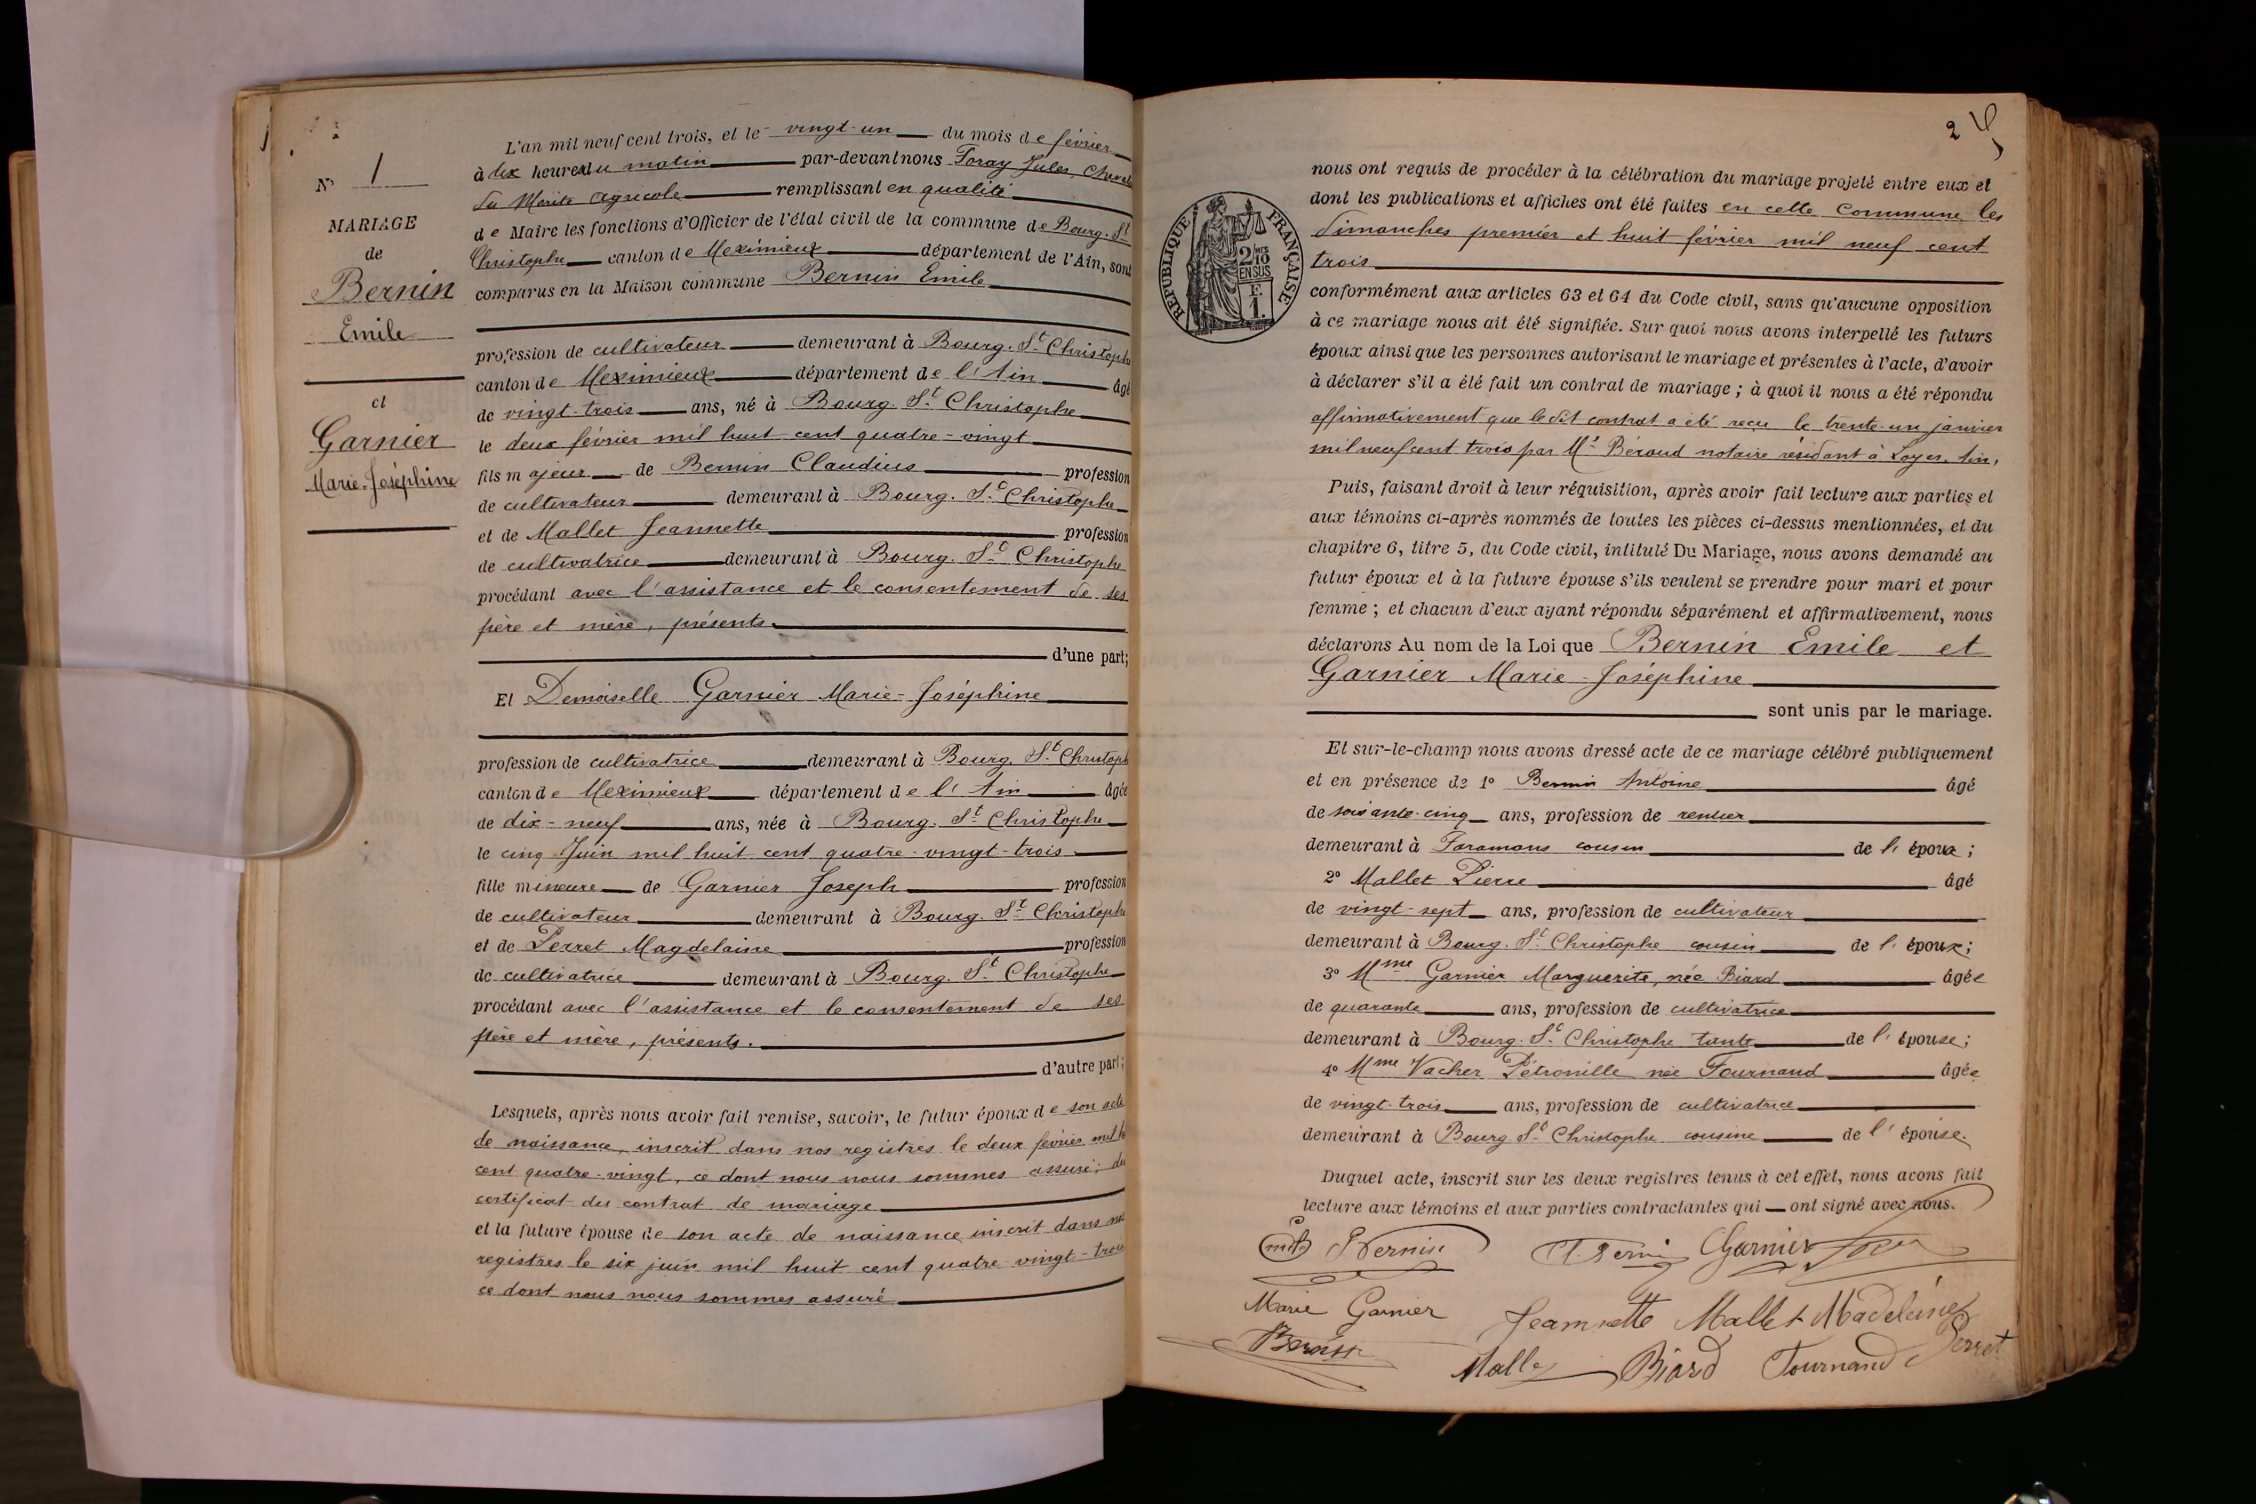 N° 1
MARIAGE
de
Bernin
Emile
et
Garnier
Marie-Joséphine
L'an mil neuf cent trois, et le vingt-un du mois de février
à dix heures du matin par-devant nous Foray Jules, Cheval
du Mérite agricole remplissant en qualité
de Maire les fonctions d'Officier de l'état civil de la commune de Bourg-St
Christophe canton de Meximieux département de l'Ain, sont
comparus en la Maison commune Bernin Emile
profession de cultivateur demeurant à Bourg-St Christophe
canton de Meximieux département de l'Ain âgé
de vingt-trois ans, né à Bourg-St Christophe
le deux février mil huit cent quatre-vingt
fils majeur de Bernin Claudius profession
de cultivateur demeurant à Bourg-St Christophe
et de Mallet Jeannette profession
de cultivatrice demeurant à Bourg-St Christophe
procédant avec l'assistance et le consentement de ses
père et mère, présents.
d'une part;
Et Demoiselle Garnier Marie-Joséphine
profession de cultivatrice demeurant à Bourg-St Christoph
canton de Meximieux département de l'Ain âgée
de dix-neuf ans, née à Bourg-St Christophe
le cinq Juin mil huit cent quatre-vingt-trois
fille mineure de Garnier Joseph profession
de cultivateur demeurant à Bourg-St Christophe
et de Perret Magdelaine profession
de cultivatrice demeurant à Bourg-St Christophe
procédant avec l'assistance et le consentement de ses
père et mère, présents.
d'autre part;
Lesquels, après nous avoir fait remise, savoir, le futur époux de son acte
de naissance, inscrit dans nos registres le deux février mil h
cent quatre-vingt, ce dont nous nous sommes assuré; du
certificat du contrat de mariage
et la future épouse de son acte de naissance inscrit dans nos
registres le six juin mil huit cent quatre-vingt-trois
ce dont nous nous sommes assuré
2
RÉPUBLIQUE FRANÇAISE
2/10 EN SUS
F.
1.
nous ont requis de procéder à la célébration du mariage projeté entre eux et
dont les publications et affiches ont été faites en cette Commune les
dimanches premier et huit février mil neuf cent
trois
conformément aux articles 63 et 64 du Code civil, sans qu'aucune opposition
à ce mariage nous ait été signifiée. Sur quoi nous avons interpellé les futurs
époux ainsi que les personnes autorisant le mariage et présentes à l'acte, d'avoir
à déclarer s'il a été fait un contrat de mariage ; à quoi il nous a été répondu
affirmativement que le dit contrat a été reçu le trente-un janvier
mil neuf cent trois par Me Béroud notaire résidant à Loyes, Ain.
Puis, faisant droit à leur réquisition, après avoir fait lecture aux parties et
aux témoins ci-après nommés de toutes les pièces ci-dessus mentionnées, et du
chapitre 6, titre 5, du Code civil, intitulé Du Mariage, nous avons demandé au
futur époux et à la future épouse s'ils veulent se prendre pour mari et pour
femme ; et chacun d'eux ayant répondu séparément et affirmativement, nous
déclarons Au nom de la Loi que Bernin Emile et
Garnier Marie-Joséphine
sont unis par le mariage.
Et sur-le-champ nous avons dressé acte de ce mariage célébré publiquement
et en présence de 1° Bernin Antoine âgé
de soixante-cinq ans, profession de rentier
demeurant à Faramans cousin de l'époux ;
2° Mallet Pierre âgé
de vingt-sept ans, profession de cultivateur
demeurant à Bourg-St Christophe cousin de l'époux ;
3° Mme Garnier Marguerite, née Biard âgée
de quarante ans, profession de cultivatrice
demeurant à Bourg-St Christophe tante de l'épouse ;
4° Mme Vacher Pétronille née Tournand âgée
de vingt-trois ans, profession de cultivatrice
demeurant à Bourg St Christophe cousine de l'épouse.
Duquel acte, inscrit sur les deux registres tenus à cet effet, nous avons fait
lecture aux témoins et aux parties contractantes qui ont signé avec nous.
Emile Bernin Cl. Bernin Garnier Foray
Marie Garnier Jeannette Mallet Madeleine Perret
Bernin Mallet Biard Tournand